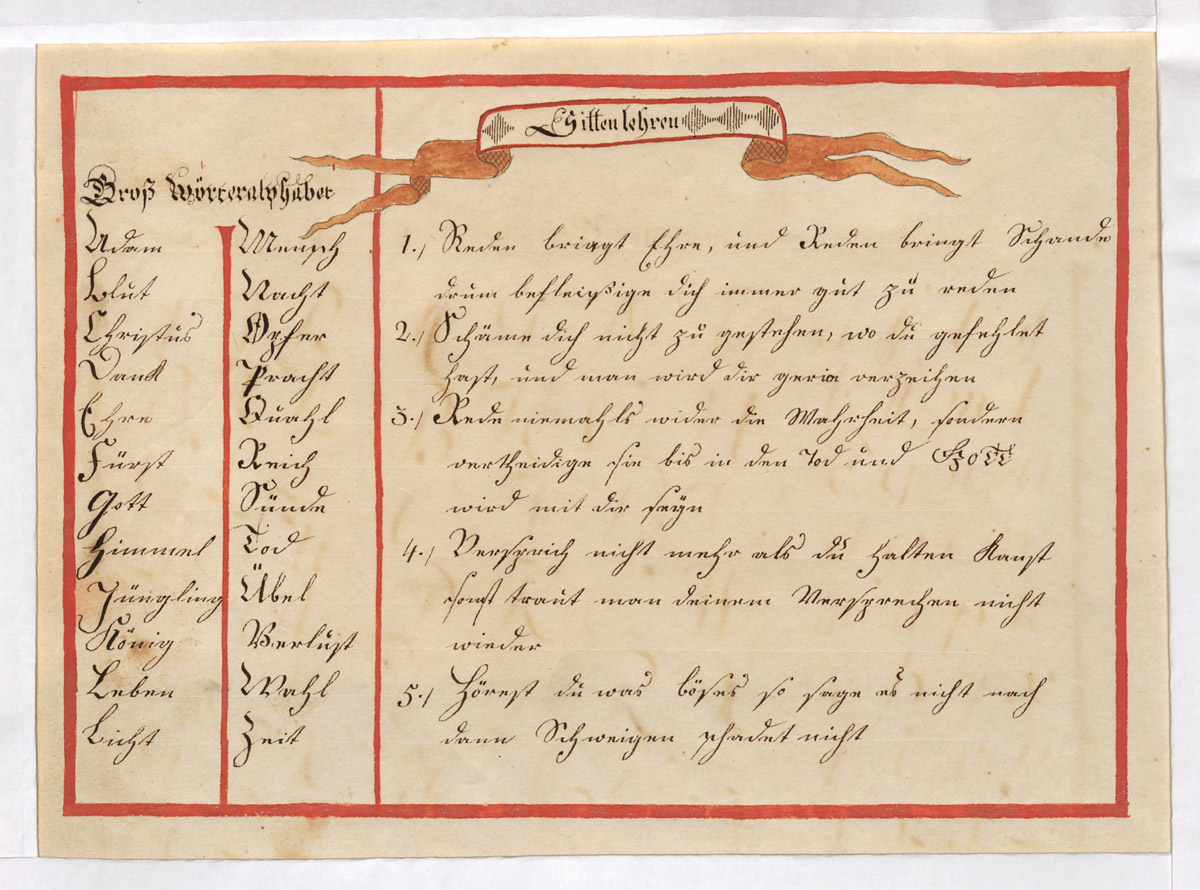 Sittenlehren
Groß Wörteralphabet
Adam
Blut
Christus
Dank
Ehre
Fürst
Gott
Himmel
Jüngling
König
Leben
Licht
Mensch
Nacht
Opfer
Pracht
Quahl
Reich
Sünde
Tod
Übel
Verlust
Wahl
Zeit
1./ Reden bringt Ehre, und Reden bringt Schande
drum befleißige dich immer gut zu reden
2./ Schäme dich nicht zu gestehen, wo du gefehlet
hast, und man wird dir gerne verzeihen
3./ Rede niemahls wider die Wahrheit, sondern
vertheidige sie bis in den Tod und GOTT
wird mit dir seyn
4./ Versprich nicht mehr als du halten kanst
sonst traut man deinem Versprechen nicht
wieder
5./ Hörest du was böses so sage es nicht nach
dann Schweigen schadet nicht